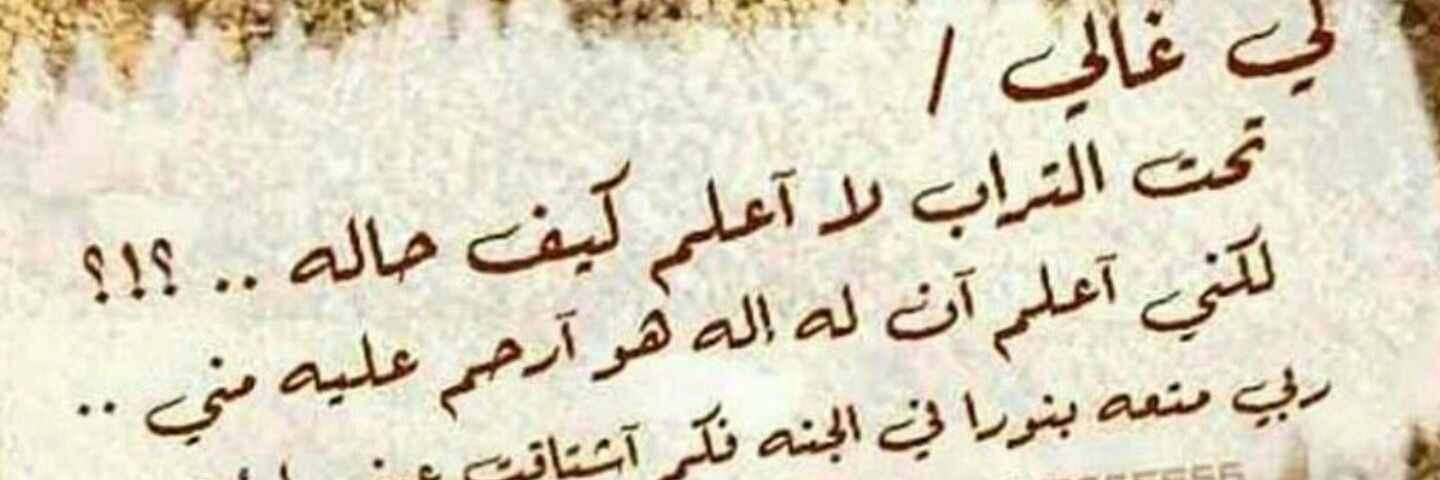 لي غالي /
تحت التراب لا آعلم كيف حاله .. ؟!؟
لكني آعلم آن له إله هو آرحم عليه مني ..
ربي متعه بنورا في الجنه فكم آشتاقت